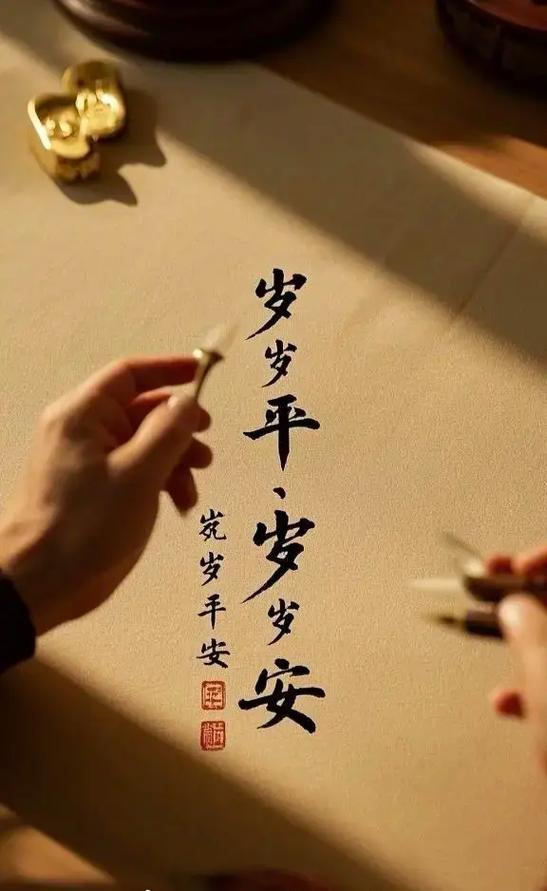 岁岁平、岁岁安
岁平安